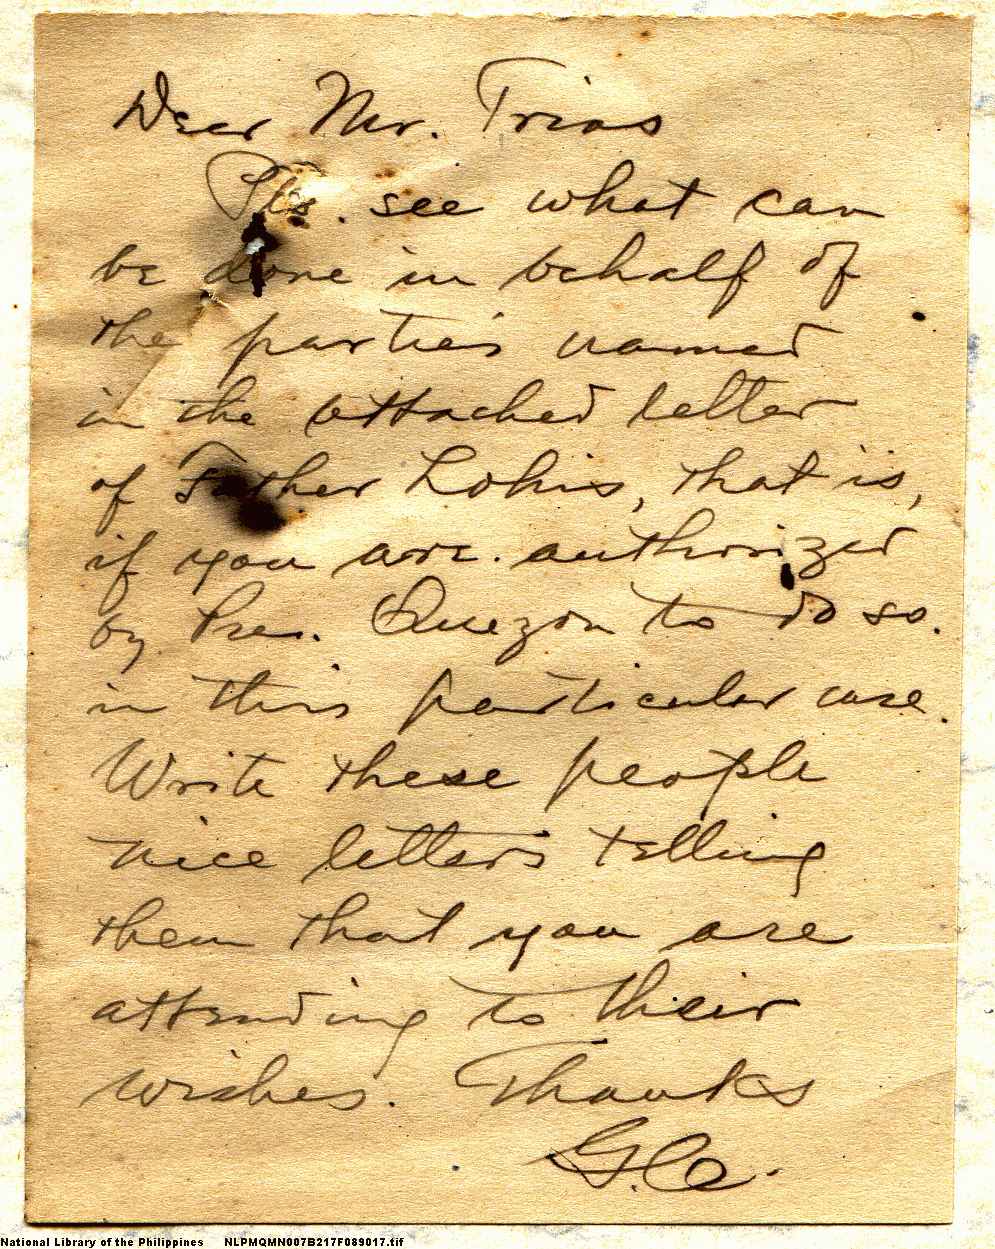 Dear Mr. Trias
Pls. see what can
be done in behalf of
the parties named
in the attached letter
of Father Lokis, that is,
if you are authorized
by Pres. Quezon to do so.
in this particular case.
Write these people
nice letters telling
them that you are
attending to their
wishes. Thanks
National Library of the Philippines NLPMQMN007B217F089017.tif